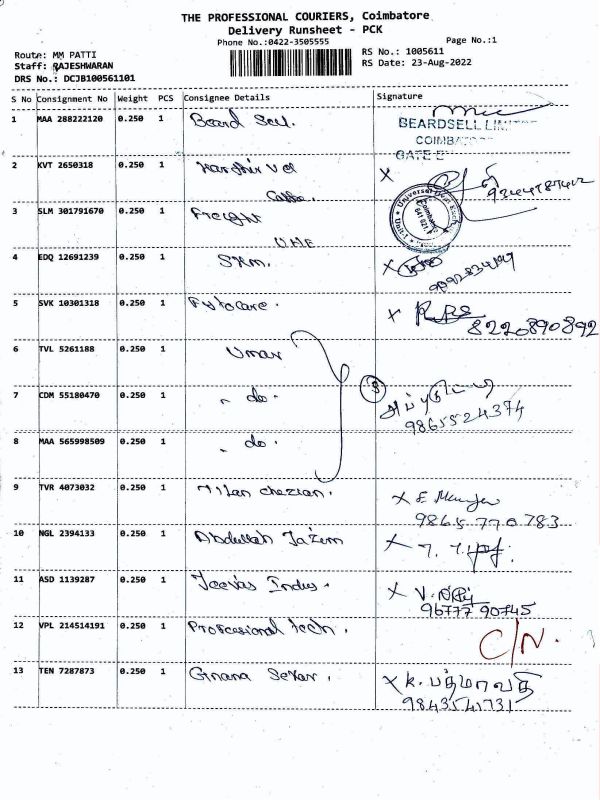 THE PROFESSIONAL COURIERS, Coimbatore
Delivery Runsheet - PCK
Phone No.:0422-3505555
Page No.:1
Route: MM PATTI
Staff: RAJESHWARAN
DRS No.: DCJB100561101
RS No.: 1005611
RS Date: 23-Aug-2022
S No Consignment No Weight PCS Consignee Details Signature
1 MAA 288222120 0.250 1 Beard Sell.
BEARDSELL
COIMB
GATE
2 KVT 2650318 0.250 1
3 SLM 301791670 0.250 1 Freight
Coimbatore
4 EDQ 12691239 0.250 1 SKM.
5 SVK 10301318 0.250 1 Fytocare.
8220890892
6 TVL 5261188 0.250 1 Umar
7 CDM 55180470 0.250 1 " do. 3
9865524374
8 MAA 565998509 0.250 1 " do.
9 TVR 4073032 0.250 1 chezian.
X E
9865 770 783
10 NGL 2394133 0.250 1 Abdullah X
11 ASD 1139287 0.250 1 Jeevas Indus. X V.
96777 90745
12 VPL 214514191 0.250 1 Professional tech. C/N.
13 TEN 7287873 0.250 1 Gnana Sekar. X K. பத்மாவதி
9843541731